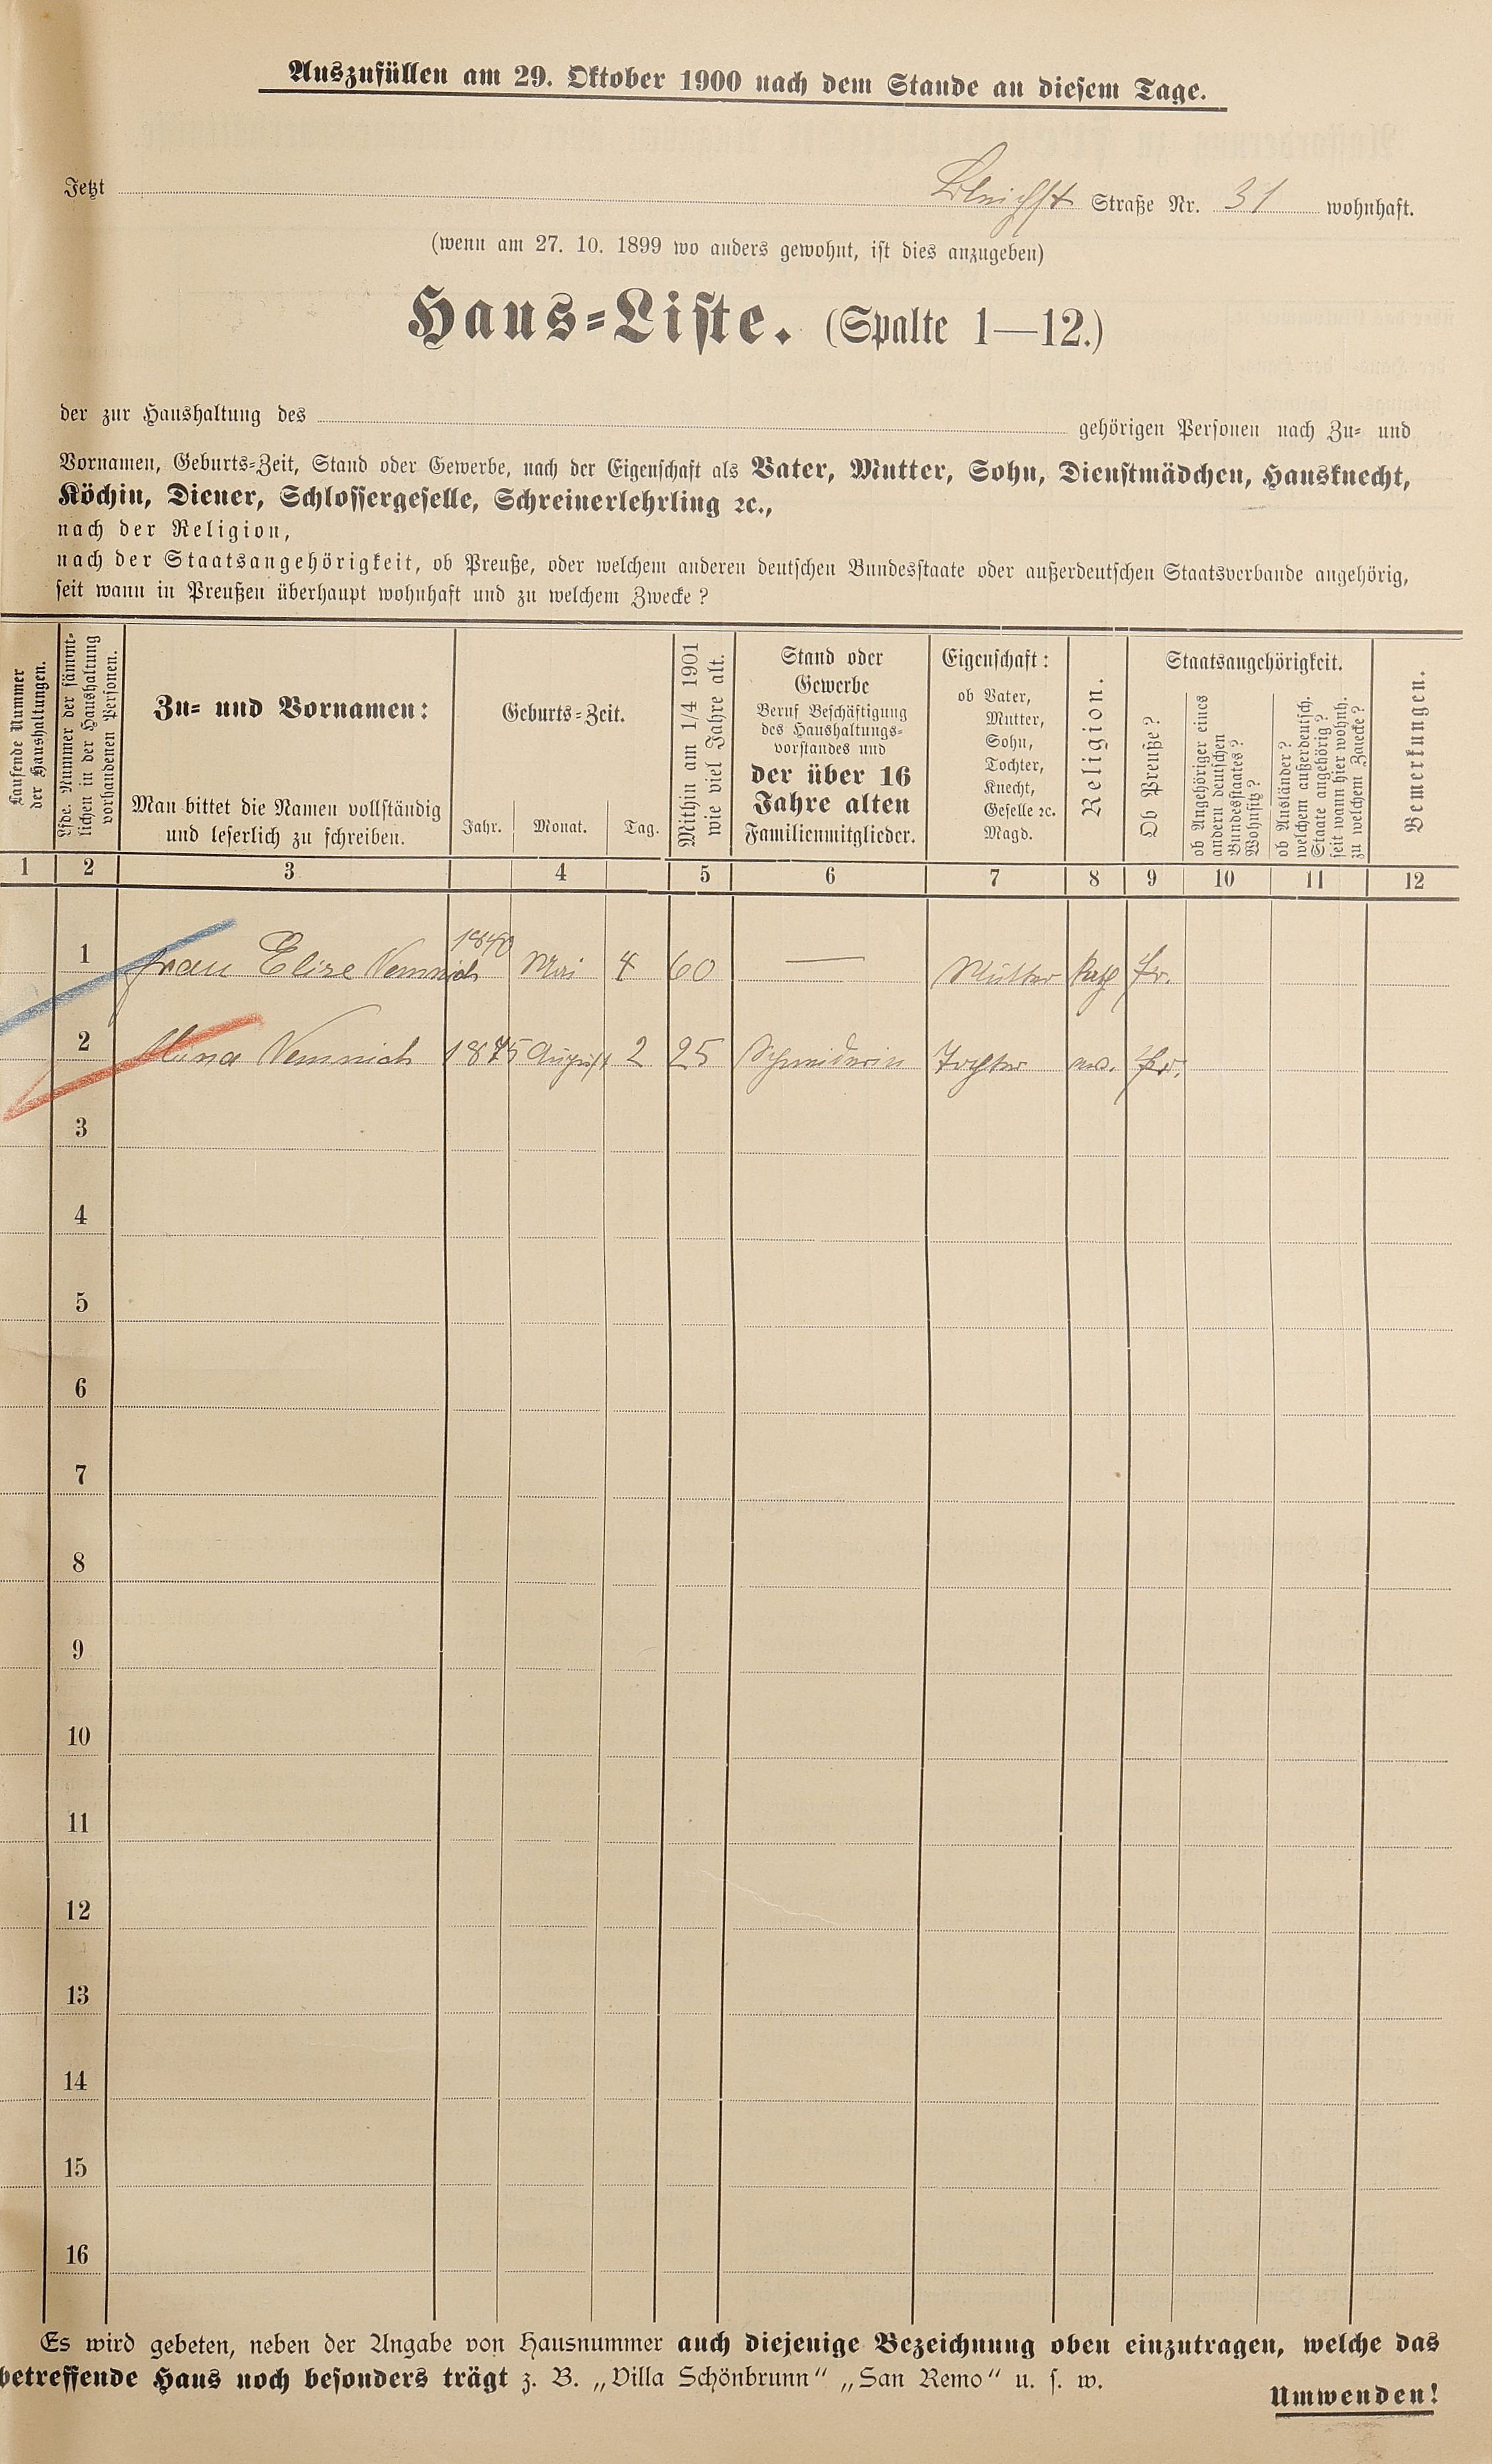 Auszufüllen am 29. Oktober 1900 nach dem Stande an diesem Tage.
Jetzt Bleichst Straße Nr. 31 wohnhaft.
(wenn am 27. 10. 1899 wo anders gewohnt, ist dies anzugeben)
Haus-Liste. (Spalte 1—12.)
der zur Haushaltung des gehörigen Personen nach Zu- und
Vornamen, Geburts-Zeit, Stand oder Gewerbe, nach der Eigenschaft als Vater, Mutter, Sohn, Dienstmädchen, Hausknecht,
Köchin, Diener, Schlossergeselle, Schreinerlehrling ꝛc.,
nach der Religion,
nach der Staatsangehörigkeit, ob Preuße, oder welchem anderen deutschen Bundesstaate oder außerdeutschen Staatsverbande angehörig,
seit wann in Preußen überhaupt wohnhaft und zu welchem Zwecke?
Laufende Nummer
der Haushaltungen.
Lfde. Nummer der sämmt-
lichen in der Haushaltung
vorhandenen Personen.
Zu- und Vornamen:
Man bittet die Namen vollständig
und leserlich zu schreiben.
Geburts-Zeit.
Jahr. Monat. Tag.
Mithin am 1/4 1901
wie viel Jahre alt.
Stand oder
Gewerbe
Beruf Beschäftigung
des Haushaltungs-
vorstandes und
der über 16
Jahre alten
Familienmitglieder.
Eigenschaft:
ob Vater,
Mutter,
Sohn,
Tochter,
Knecht,
Geselle ꝛc.
Magd.
Religion.
Staatsangehörigkeit.
Ob Preuße?
ob Angehöriger eines
andern deutschen
Bundesstaates?
Wohnsitz?
ob Ausländer?
welchem außerdeutsch.
Staate angehörig?
seit wann hier wohnh.
zu welchem Zwecke?
Bemerkungen.
1 2 3 4 5 6 7 8 9 10 11 12
1 Frau Elise Nemnich 1840 Mai 4 60 — Mutter Kath Pr.
2 Mina Nemnich 1875 August 2 25 Schneiderin Tochter Pr.
3
4
5
6
7
8
9
10
11
12
13
14
15
16
Es wird gebeten, neben der Angabe von Hausnummer auch diejenige Bezeichnung oben einzutragen, welche das
betreffende Haus noch besonders trägt z. B. „Villa Schönbrunn" „San Remo" u. s. w.
Umwenden!